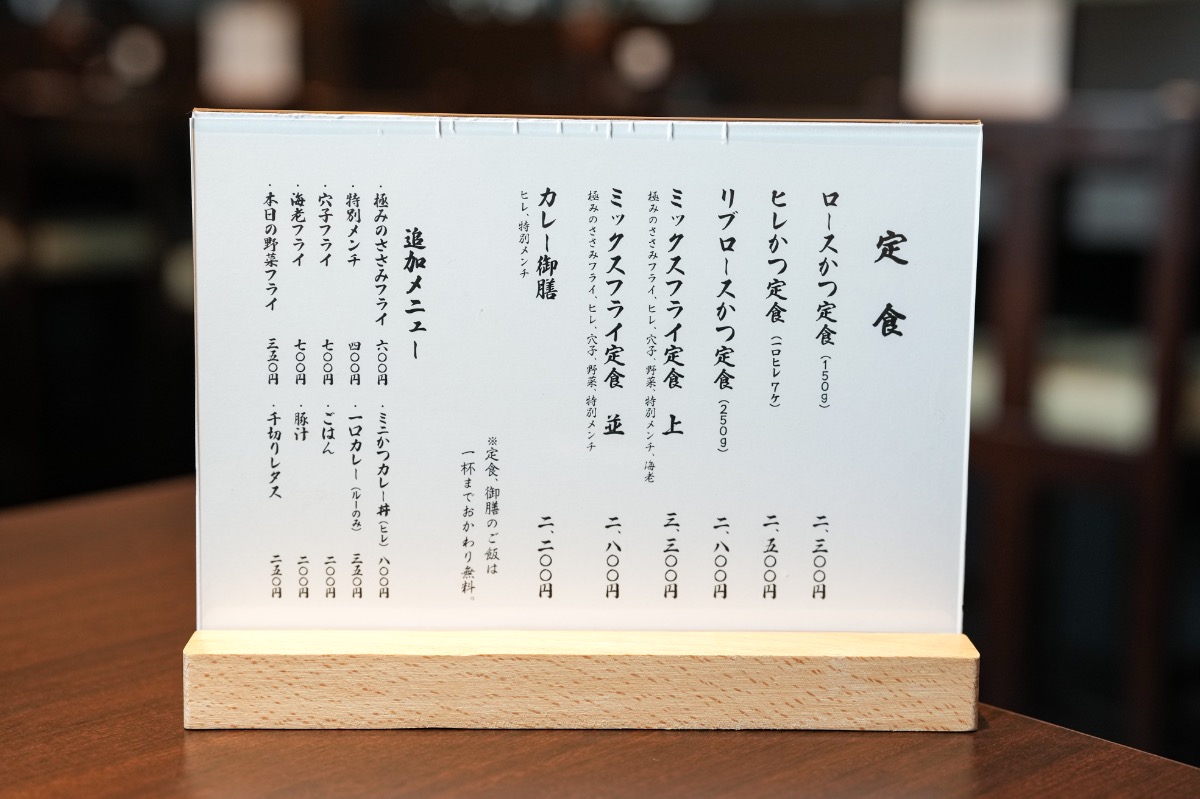 定食
ロースかつ定食（150g） 二、三〇〇円
ヒレかつ定食（一口ヒレ7ケ） 二、五〇〇円
リブロースかつ定食（250g） 二、八〇〇円
ミックスフライ定食 上 三、三〇〇円
極みのささみフライ、ヒレ、穴子、野菜、特別メンチ、海老
ミックスフライ定食 並 二、八〇〇円
極みのささみフライ、ヒレ、穴子、野菜、特別メンチ
カレー御膳 二、二〇〇円
ヒレ、特別メンチ
※定食、御膳のご飯は
一杯までおかわり無料。
追加メニュー
・極みのささみフライ 六〇〇円
・特別メンチ 四〇〇円
・穴子フライ 七〇〇円
・海老フライ 七〇〇円
・本日の野菜フライ 三五〇円
・ミニかつカレー丼（ヒレ） 八〇〇円
・一口カレー（ルーのみ） 三五〇円
・ごはん 二〇〇円
・豚汁 二〇〇円
・千切りレタス 二五〇円